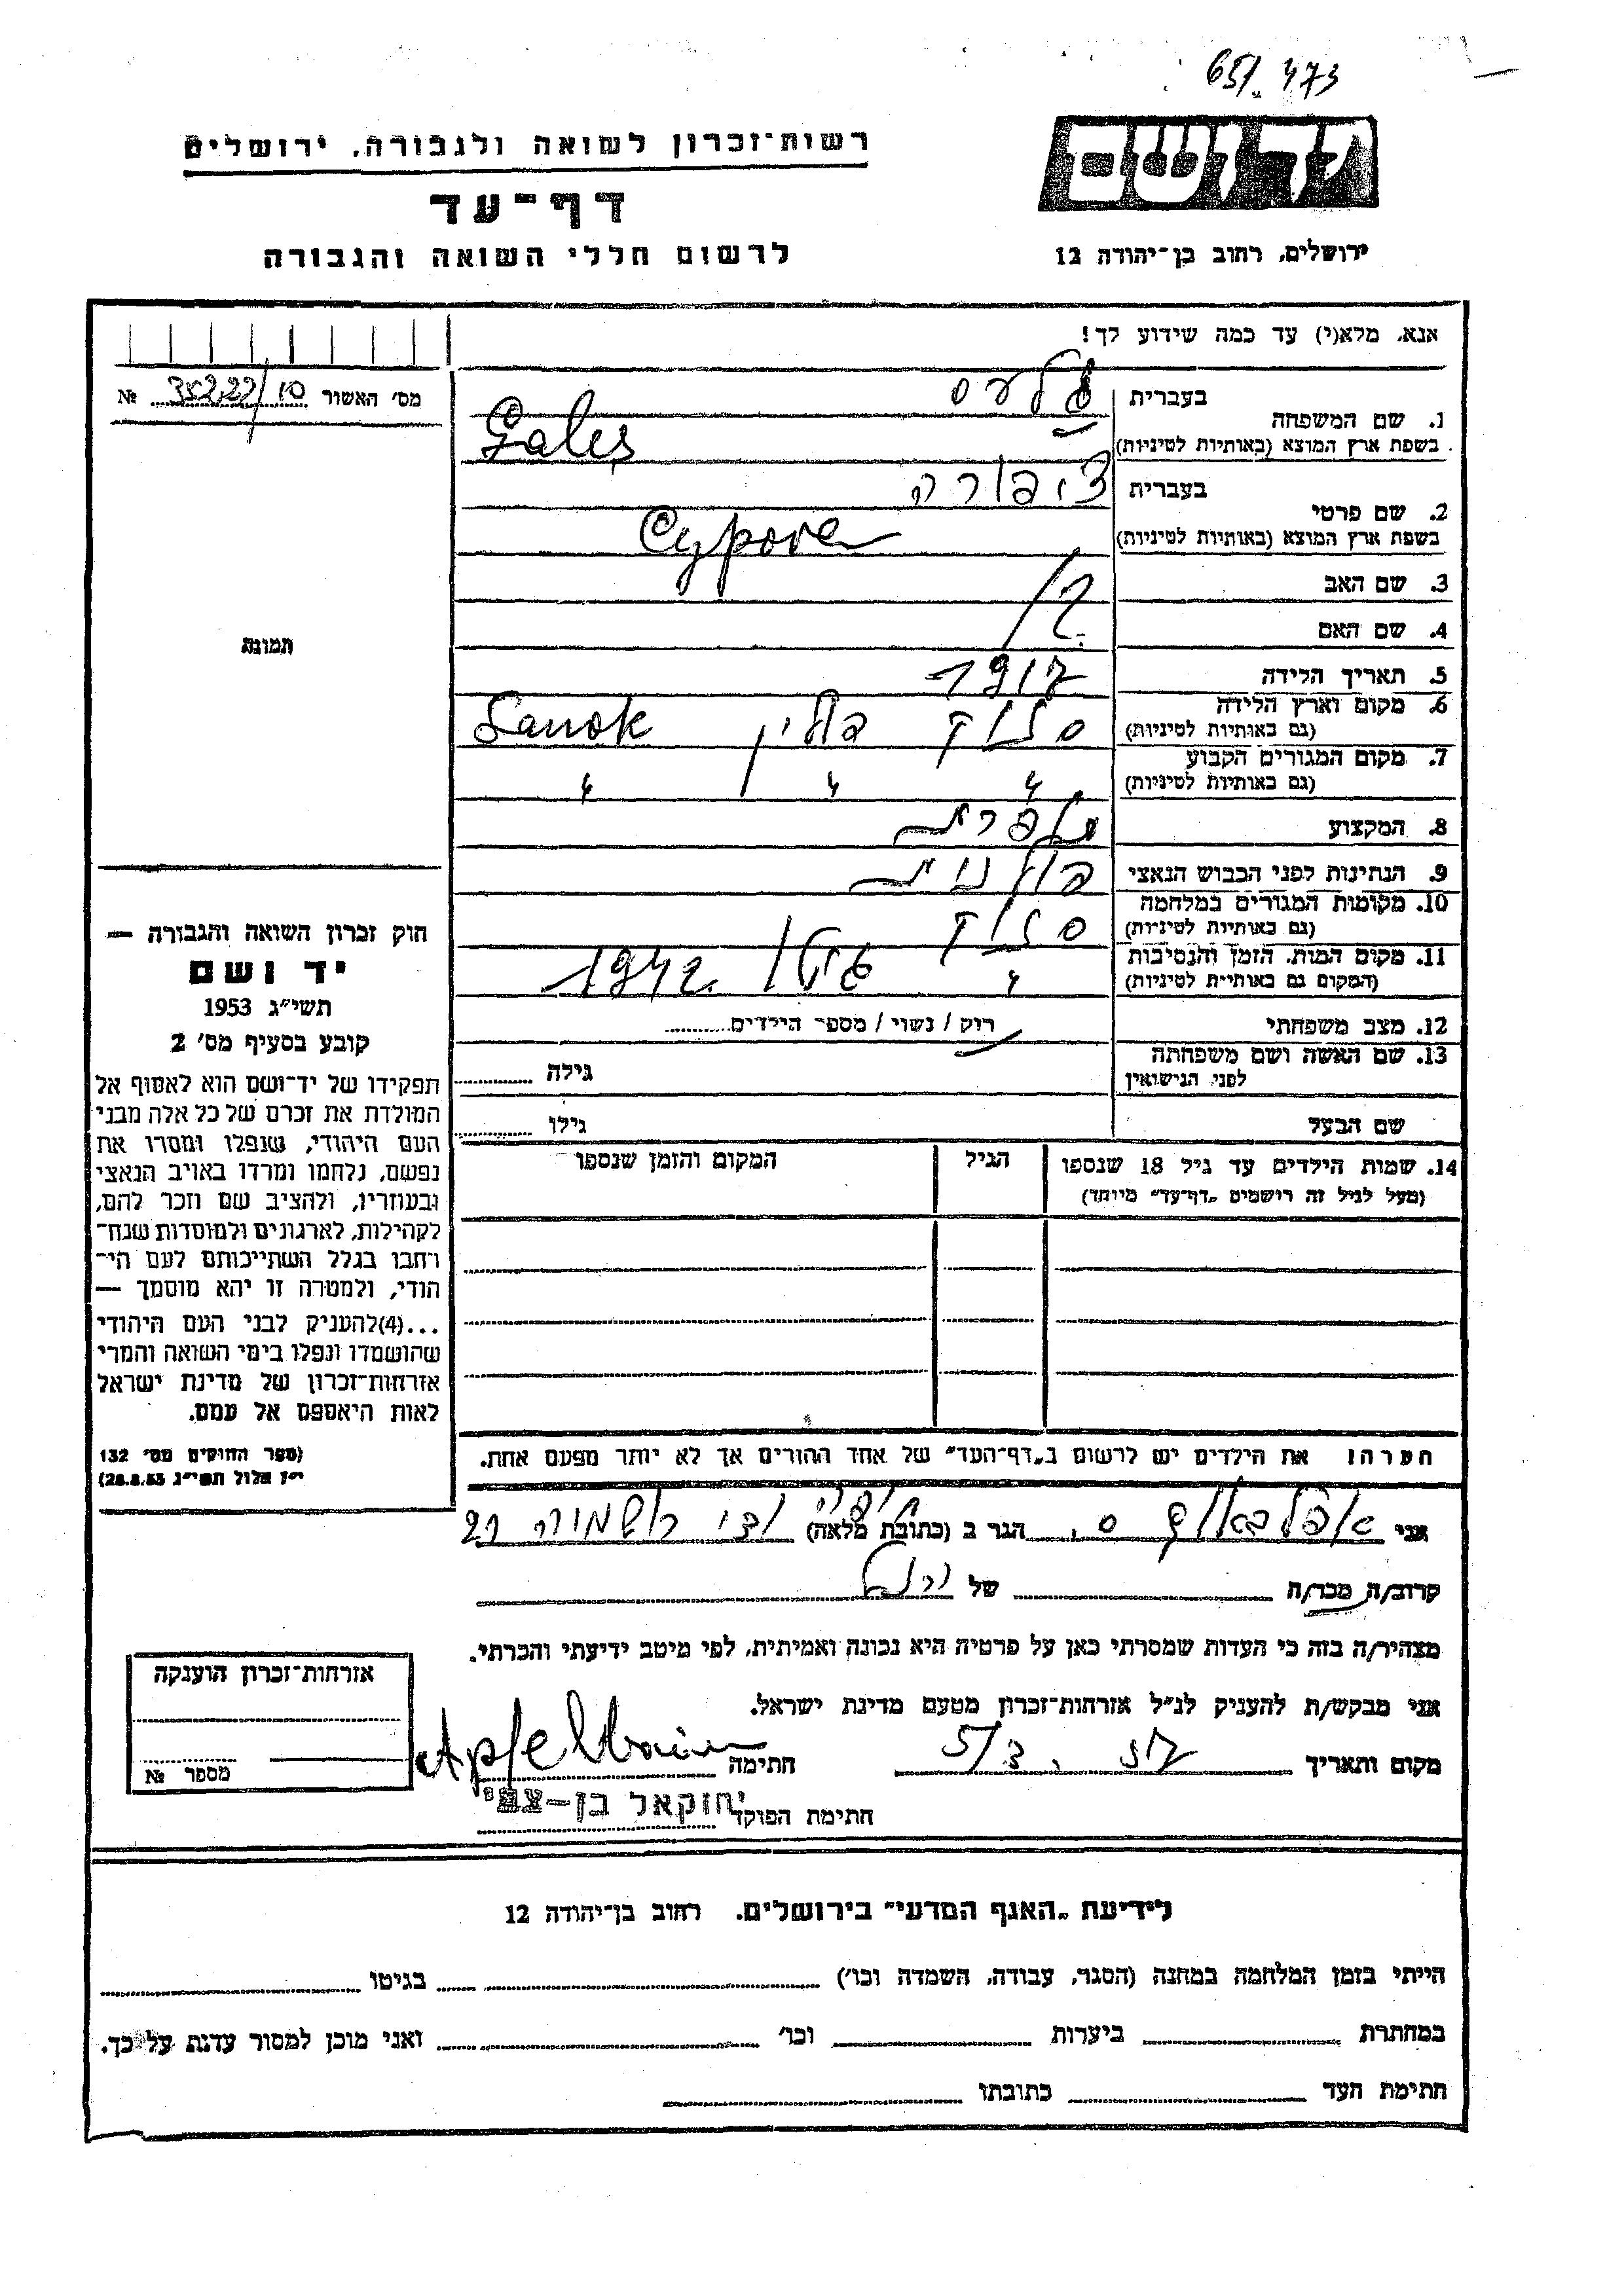 651.473
רשות־זכרון לשואה ולגבורה, ירושלים
דף־עד
לרשום חללי השואה והגבורה
יד ושם
ירושלים, רחוב בן־יהודה 12
אנא, מלא(י) עד כמה שידוע לך!
מס׳ האשור 35222/10 №
תמונה
1. שם המשפחה
בעברית גלעס
בשפת ארץ המוצא (באותיות לטיניות) Gales
2. שם פרטי
בעברית ציפורה
בשפת ארץ המוצא (באותיות לטיניות) Cypora
3. שם האב
4. שם האם
5. תאריך הלידה 1917
6. מקום וארץ הלידה סנוק פולין Sanok
(גם באותיות לטיניות)
7. מקום המגורים הקבוע
(גם באותיות לטיניות)
8. המקצוע
9. הנתינות לפני הכבוש הנאצי פולנית
10. מקומות המגורים במלחמה סנוק
(גם באותיות לטיניות)
11. מקום המות, הזמן והנסיבות 1942
(המקום גם באותיות לטיניות)
12. מצב משפחתי רוק / נשוי / מספר הילדים
13. שם האשה ושם משפחתה גילה
לפני הנישואין
שם הבעל גילו
14. שמות הילדים עד גיל 18 שנספו הגיל המקום והזמן שנספו
(מעל לגיל זה רושמים „דף־עד״ מיוחד)
חוק זכרון השואה והגבורה —
יד ושם
תשי״ג 1953
קובע בסעיף מס׳ 2
תפקידו של יד־ושם הוא לאסוף אל
המולדת את זכרם של כל אלה מבני
העם היהודי, שנפלו ומסרו את
נפשם, נלחמו ומרדו באויב הנאצי
ובעוזריו, ולהציב שם וזכר להם,
לקהילות, לארגונים ולמוסדות שנח־
רחבו בגלל השתייכותם לעם הי־
הודי, ולמטרה זו יהא מוסמך —
...(4)להעניק לבני העם היהודי
שהושמדו ונפלו בימי השואה והמרי
אזרחות־זכרון של מדינת ישראל
לאות היאספם אל עמם.
(ספר החוקים מס׳ 132
י״ז אלול תשי״ג 28.8.53)
הערה! את הילדים יש לרשום ב„דף־העד״ של אחד ההורים אך לא יותר מפעם אחת.
אני אפלבאום ס. הגר ב (כתובת מלאה) חיפה 29
קרוב/ה מכר/ה של
מצהיר/ה בזה כי העדות שמסרתי כאן על פרטיה היא נכונה ואמיתית, לפי מיטב ידיעתי והכרתי.
אני מבקש/ת להעניק לנ״ל אזרחות־זכרון מטעם מדינת ישראל.
מקום ותאריך 5/3. 57 חתימה Apfelbaum
חתימת הפוקד יחזקאל בן-צבי
אזרחות־זכרון הוענקה
מספר №
לידיעת „האגף המדעי״ בירושלים, רחוב בן־יהודה 12
הייתי בזמן המלחמה במחנה (הסגר, עבודה, השמדה וכו׳) בגיטו
במחתרת ביערות וכו׳ ואני מוכן למסור עדות על כך.
חתימת העד כתובתו